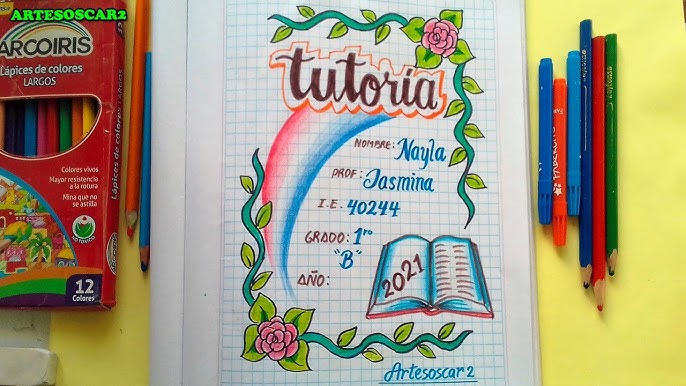 ARTESOSCAR2
ARCOIRIS
Lápices de colores
LARGOS
Colores vivos
Mayor resistencia
a la rotura
Mina que no
se astilla
NO TÓXICO
12
Colores
Lápices de colores
LARGOS
tutoría
NOMBRE: Nayla
PROF: Jasmina
I.E: 40244
GRADO: 1ro
"B"
AÑO: 2021
Artesoscar2